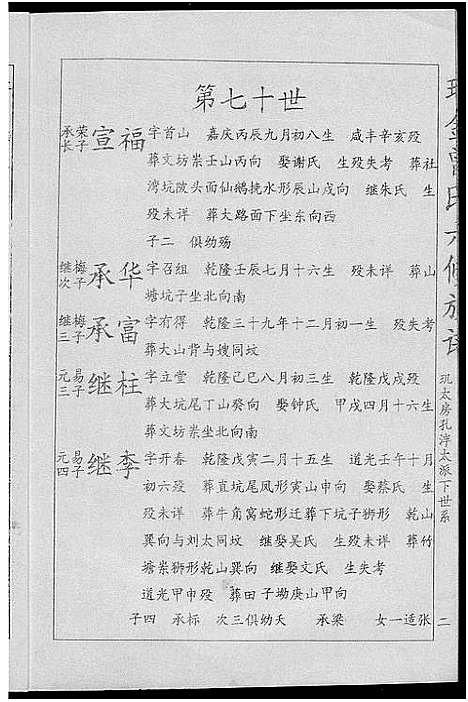 第七十世
承荣长子 宣福 字首山 嘉庆丙辰九月初八生 咸丰辛亥殁
葬文坊崇壬山丙向 娶谢氏 生殁失考 葬社
湾坑陂头面仙鹅挽水形辰山戌向 继朱氏 生
殁未详 葬大路面下坐东向西
子二 俱幼殇
继梅次子 承华 字召组 乾隆壬辰七月十六生 殁未详 葬山
塘坑子坐北向南
继梅三子 承富 字有得 乾隆三十九年十二月初一生 殁失考
葬大山背与嫂同坟
元易三子 继柱 字立堂 乾隆己巳八月初三生 乾隆戊戌殁
葬大坑尾丁山癸向 娶钟氏 甲戌四月十六生
葬文坊崇坐北向南
元易四子 继李 字开春 乾隆戊寅二月十五生 道光壬午十月
初六殁 葬直坑尾凤形寅山申向 娶蔡氏 生
殁未详 葬牛角窝蛇形迁葬下坑子狮形 乾山
巽向与刘太同坟 继娶吴氏 生殁未详 葬竹
塘崇狮形乾山巽向 继娶文氏 生失考
道光甲申殁 葬田子塆庚山甲向
子四 标 承 次三俱幼夭 梁 承 女一适张
氏六修族谱
玑太房孔泽太派下世系
二